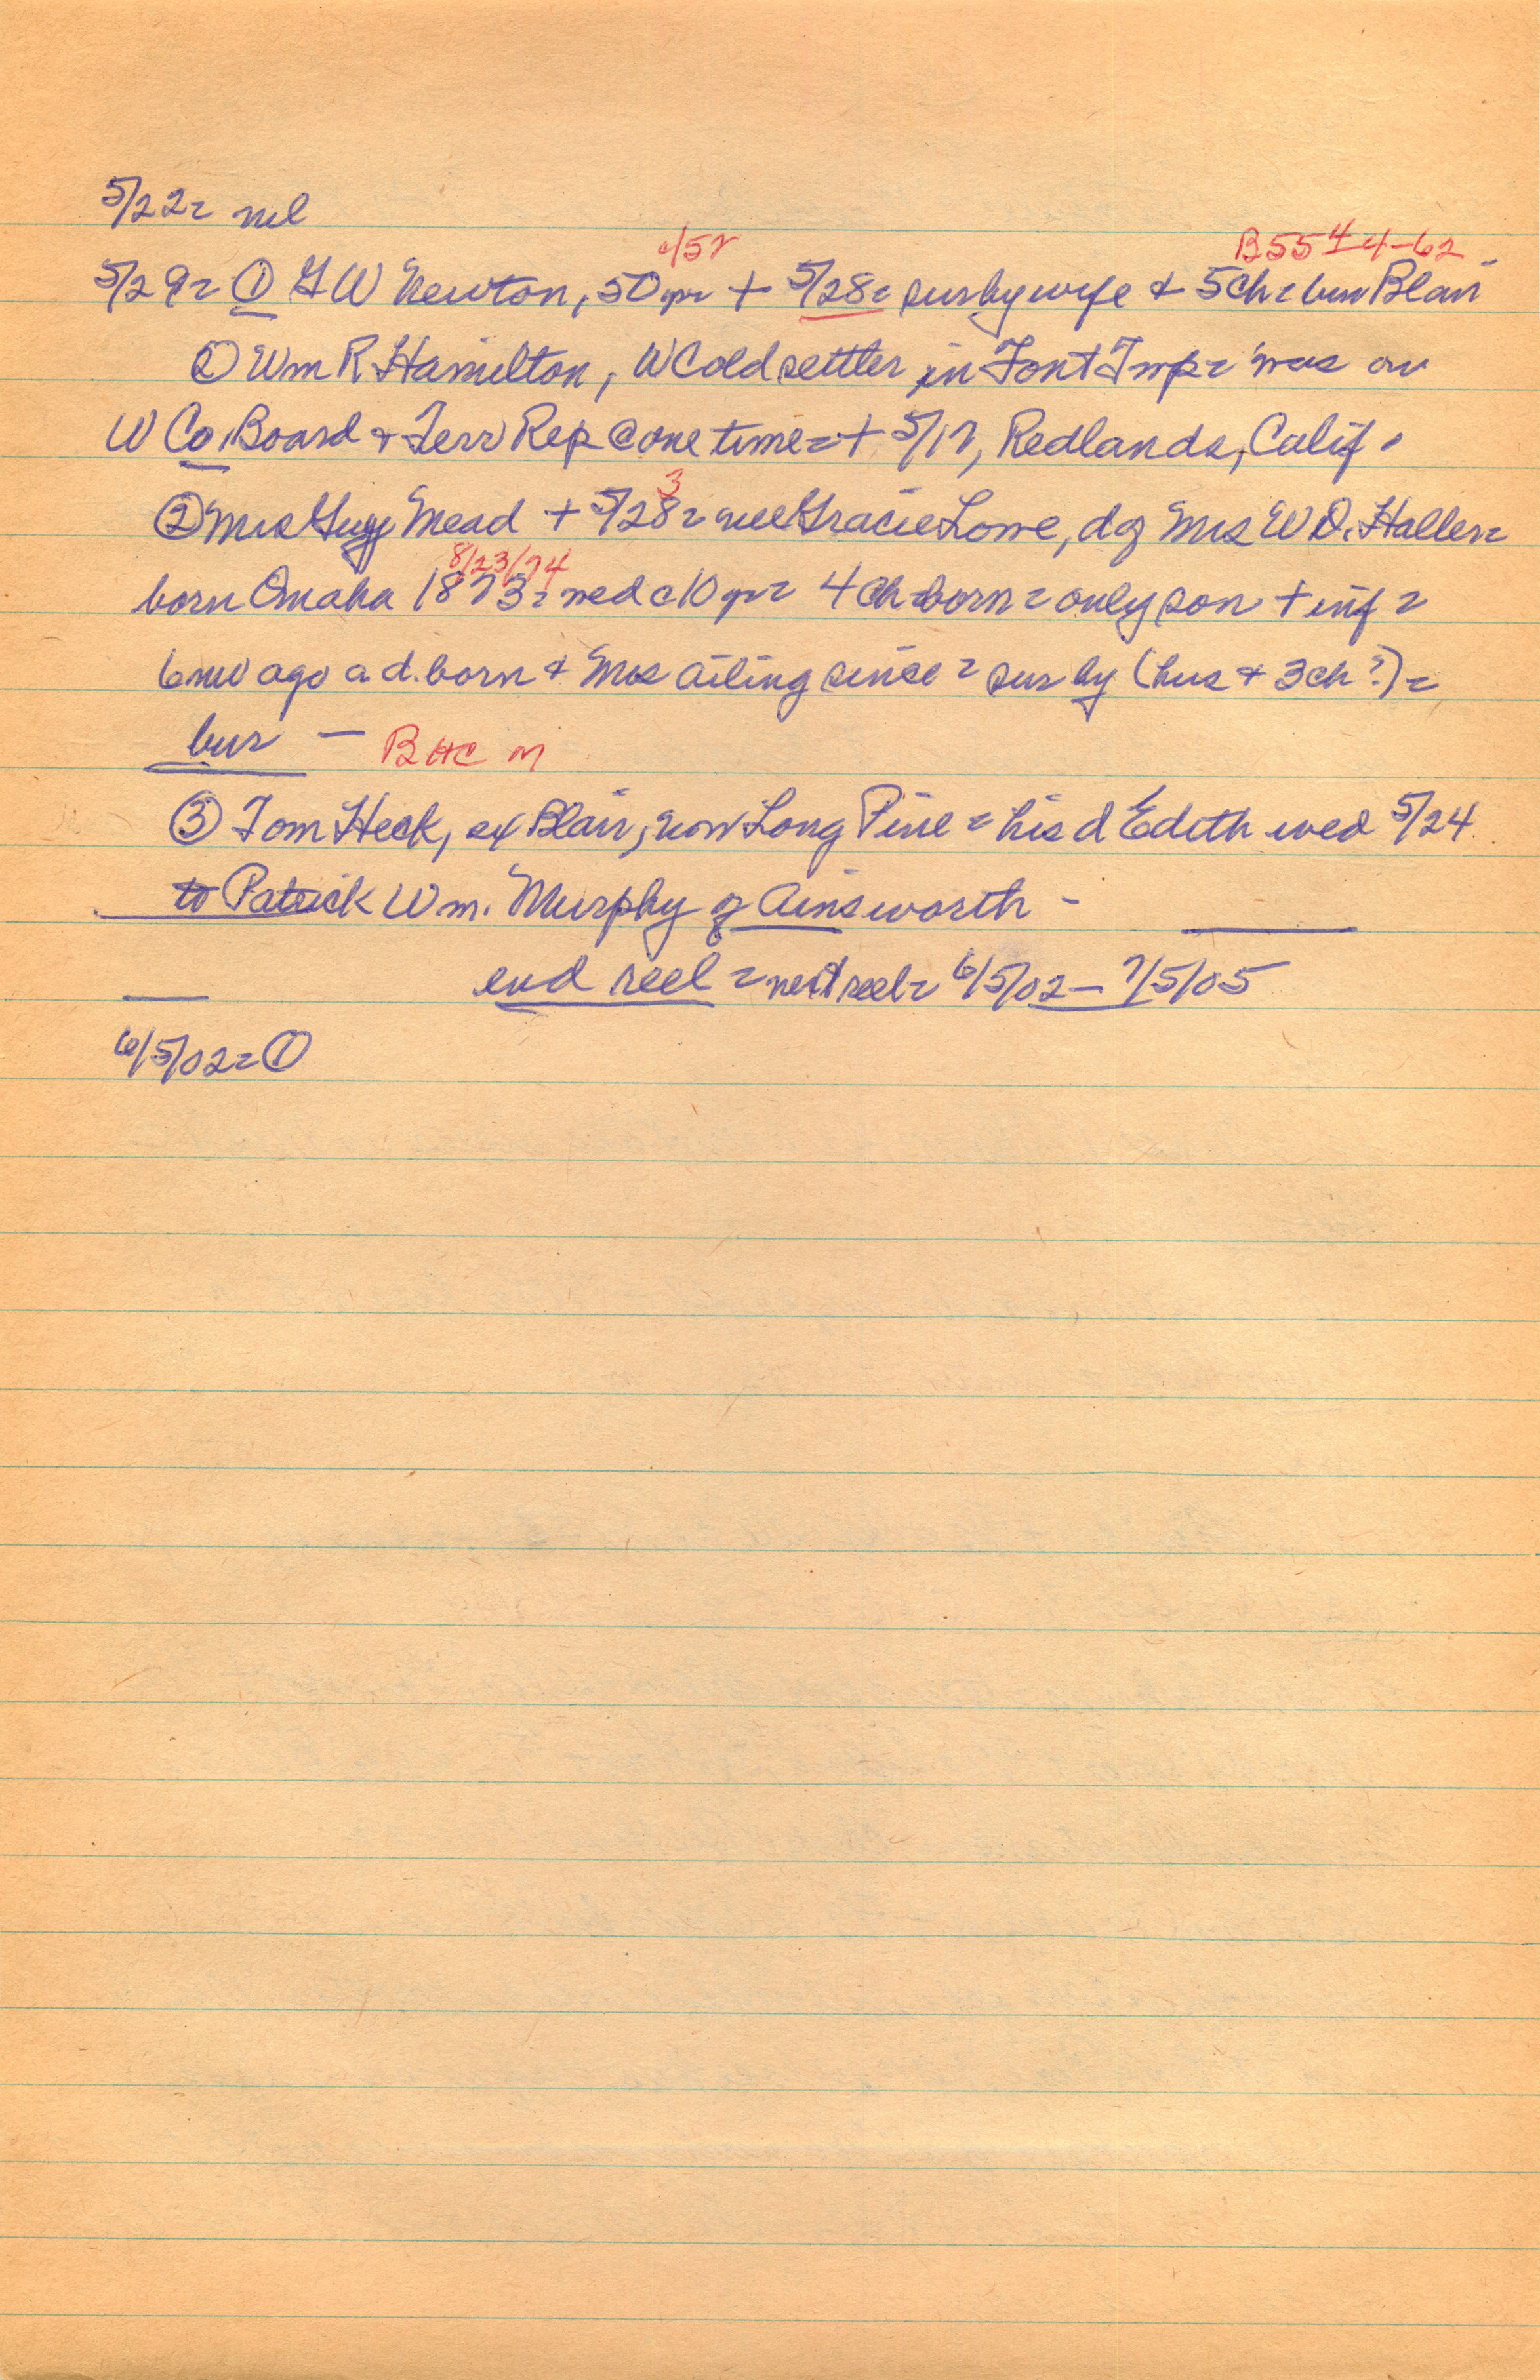 5/22= nil
4/52 B55 4 4-62
5/29= ① G W Newton, 50 yr + 5/28= sur by wife & 5 ch = bur Blair
② Wm R Hamilton, W Co old settler in Font Twp = was on
W Co. Board & Terr Rep @ one time = + 5/17, Redlands, Calif.
3
② Mrs Guy Mead + 5/28 = nee Gracie Lowe, d of Mrs W D. Haller=
8/23/74
born Omaha 1873 = wed c 10 yr = 4 ch born = only son + inf =
6 mo ago a d. born & Mrs ailing since = sur by (hus & 3 ch?) =
bur — B HC M
③ Tom Heck, ex Blair, now Long Pine = his d Edith wed 5/24
to Patrick Wm. Murphy of Ainsworth -
end reel = next reel = 6/5/02 - 7/5/05
6/5/02= ①